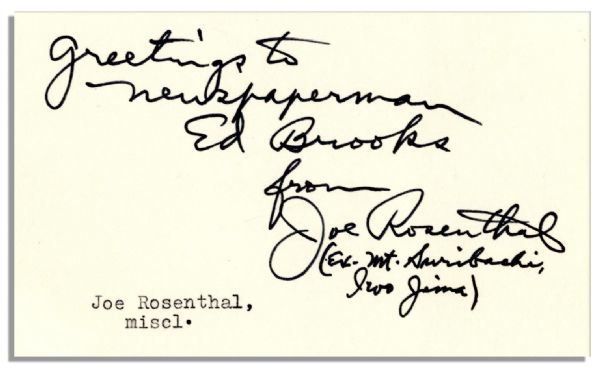 Greetings to
newspaperman
Ed Brooks
from
Joe Rosenthal
(Ex-Mt. Suribachi,
Iwo Jima)
Joe Rosenthal,
miscl.